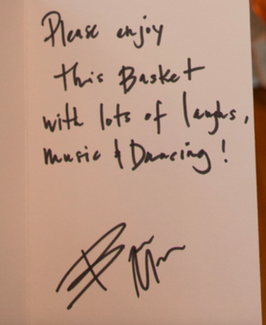 Please enjoy
this Basket
with lots of laughs,
music & Dancing!